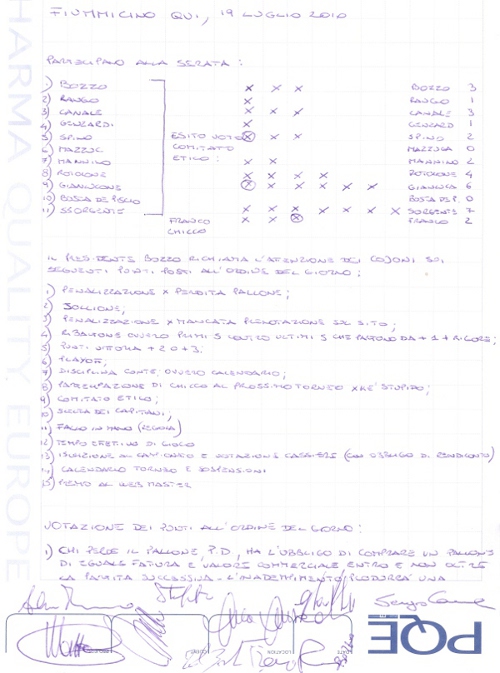 FIUMMICINO QUI, 19 LUGLIO 2010
PARTECIPANO ALLA SERATA:
1) BOZZO X X X BOZZO 3
2) RANGO X RANGO 1
3) CANALE X X X CANALE 3
4) GENZARDI X GENZARDI 1
5) SPINO ESITO VOTO X X X SPINO 2
6) MAZZUC COMITATO MAZZUCA 0
7) MANNINO ETILO: X X MANNINO 2
8) ROTOLONE X X X X ROTOLONE 4
9) GIANLUCONE X X X X X X GIANLUCA 6
10) BOSTA DE P. 0
11) SSORGENTE X X X X X X X SORGENTE 7
FRANCO CHICCO X X X FRANCO 2
IL PRESIDENTE BOZZO RICHIAMA L'ATTENZIONE DEI COJONI SUI
SEGUENTI PUNTI POSTI ALL'ORDINE DEL GIORNO:
1) PENALIZZAZIONE X PERDITA PALLONE;
2) SOLLIONE;
3) PENALIZZAZIONE X MANCATA PRENOTAZIONE SUL SITO;
4) RIBALTONE OVVERO PRIMI 5 CONTRO ULTIMI 5 CHE PARTONO DA +1 + RIGORE;
5) PUNTI VITTORIA +2 O +3;
6) PLAYOFF;
7) DISCIPLINA CONTE OVVERO CALENDARIO;
8) PARTECIPAZIONE DI CHICCO AL PROSSIMO TORNEO XKÈ STUPIDO;
9) COMITATO ETILO;
10) SCELTA DEI CAPITANI;
11) FALLO IN MANO (REGOLA)
12) TEMPO EFFETTIVO DI GIOCO
13) ISCRIZIONE AL CAMPIONATO E DOTAZIONE CASSIERE (CON OBBLIGO DI RENDICONTO)
14) CALENDARIO TORNEO E SOSPENSIONI
15) PREMIO AL WEB MASTER
VOTAZIONE DEI PUNTI ALL'ORDINE DEL GIORNO:
1) CHI PERDE IL PALLONE, P.D., HA L'OBBLIGO DI COMPRARE UN PALLONE
DI EGUALE FATTURA E VALORE COMMERCIALE ENTRO E NON OLTRE
LA PARTITA SUCCESSIVA. L'INADEMPIMENTO PRODURRÀ UNA
PHARMA QUALITY EUROPE
PQE